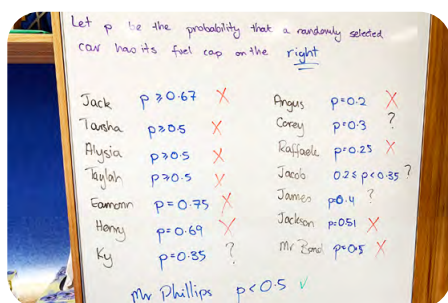 Let p be the probability that a randomly selected
car has its fuel cap on the right
Jack p ≥ 0.67 X
Tarsha p ≥ 0.5 X
Alysia p ≥ 0.5 X
Taylah p > 0.5 X
Eamonn p = 0.75 X
Henry p = 0.69 X
Ky p = 0.35 ?
Angus p = 0.2 X
Corey p = 0.3 ?
Raffaele p = 0.25 X
Jacob 0.2 ≤ p < 0.35 ?
James p = 0.4 ?
Jackson p = 0.51 X
Mr Bond p = 0.5 X
Mr Phillips p < 0.5 ✓